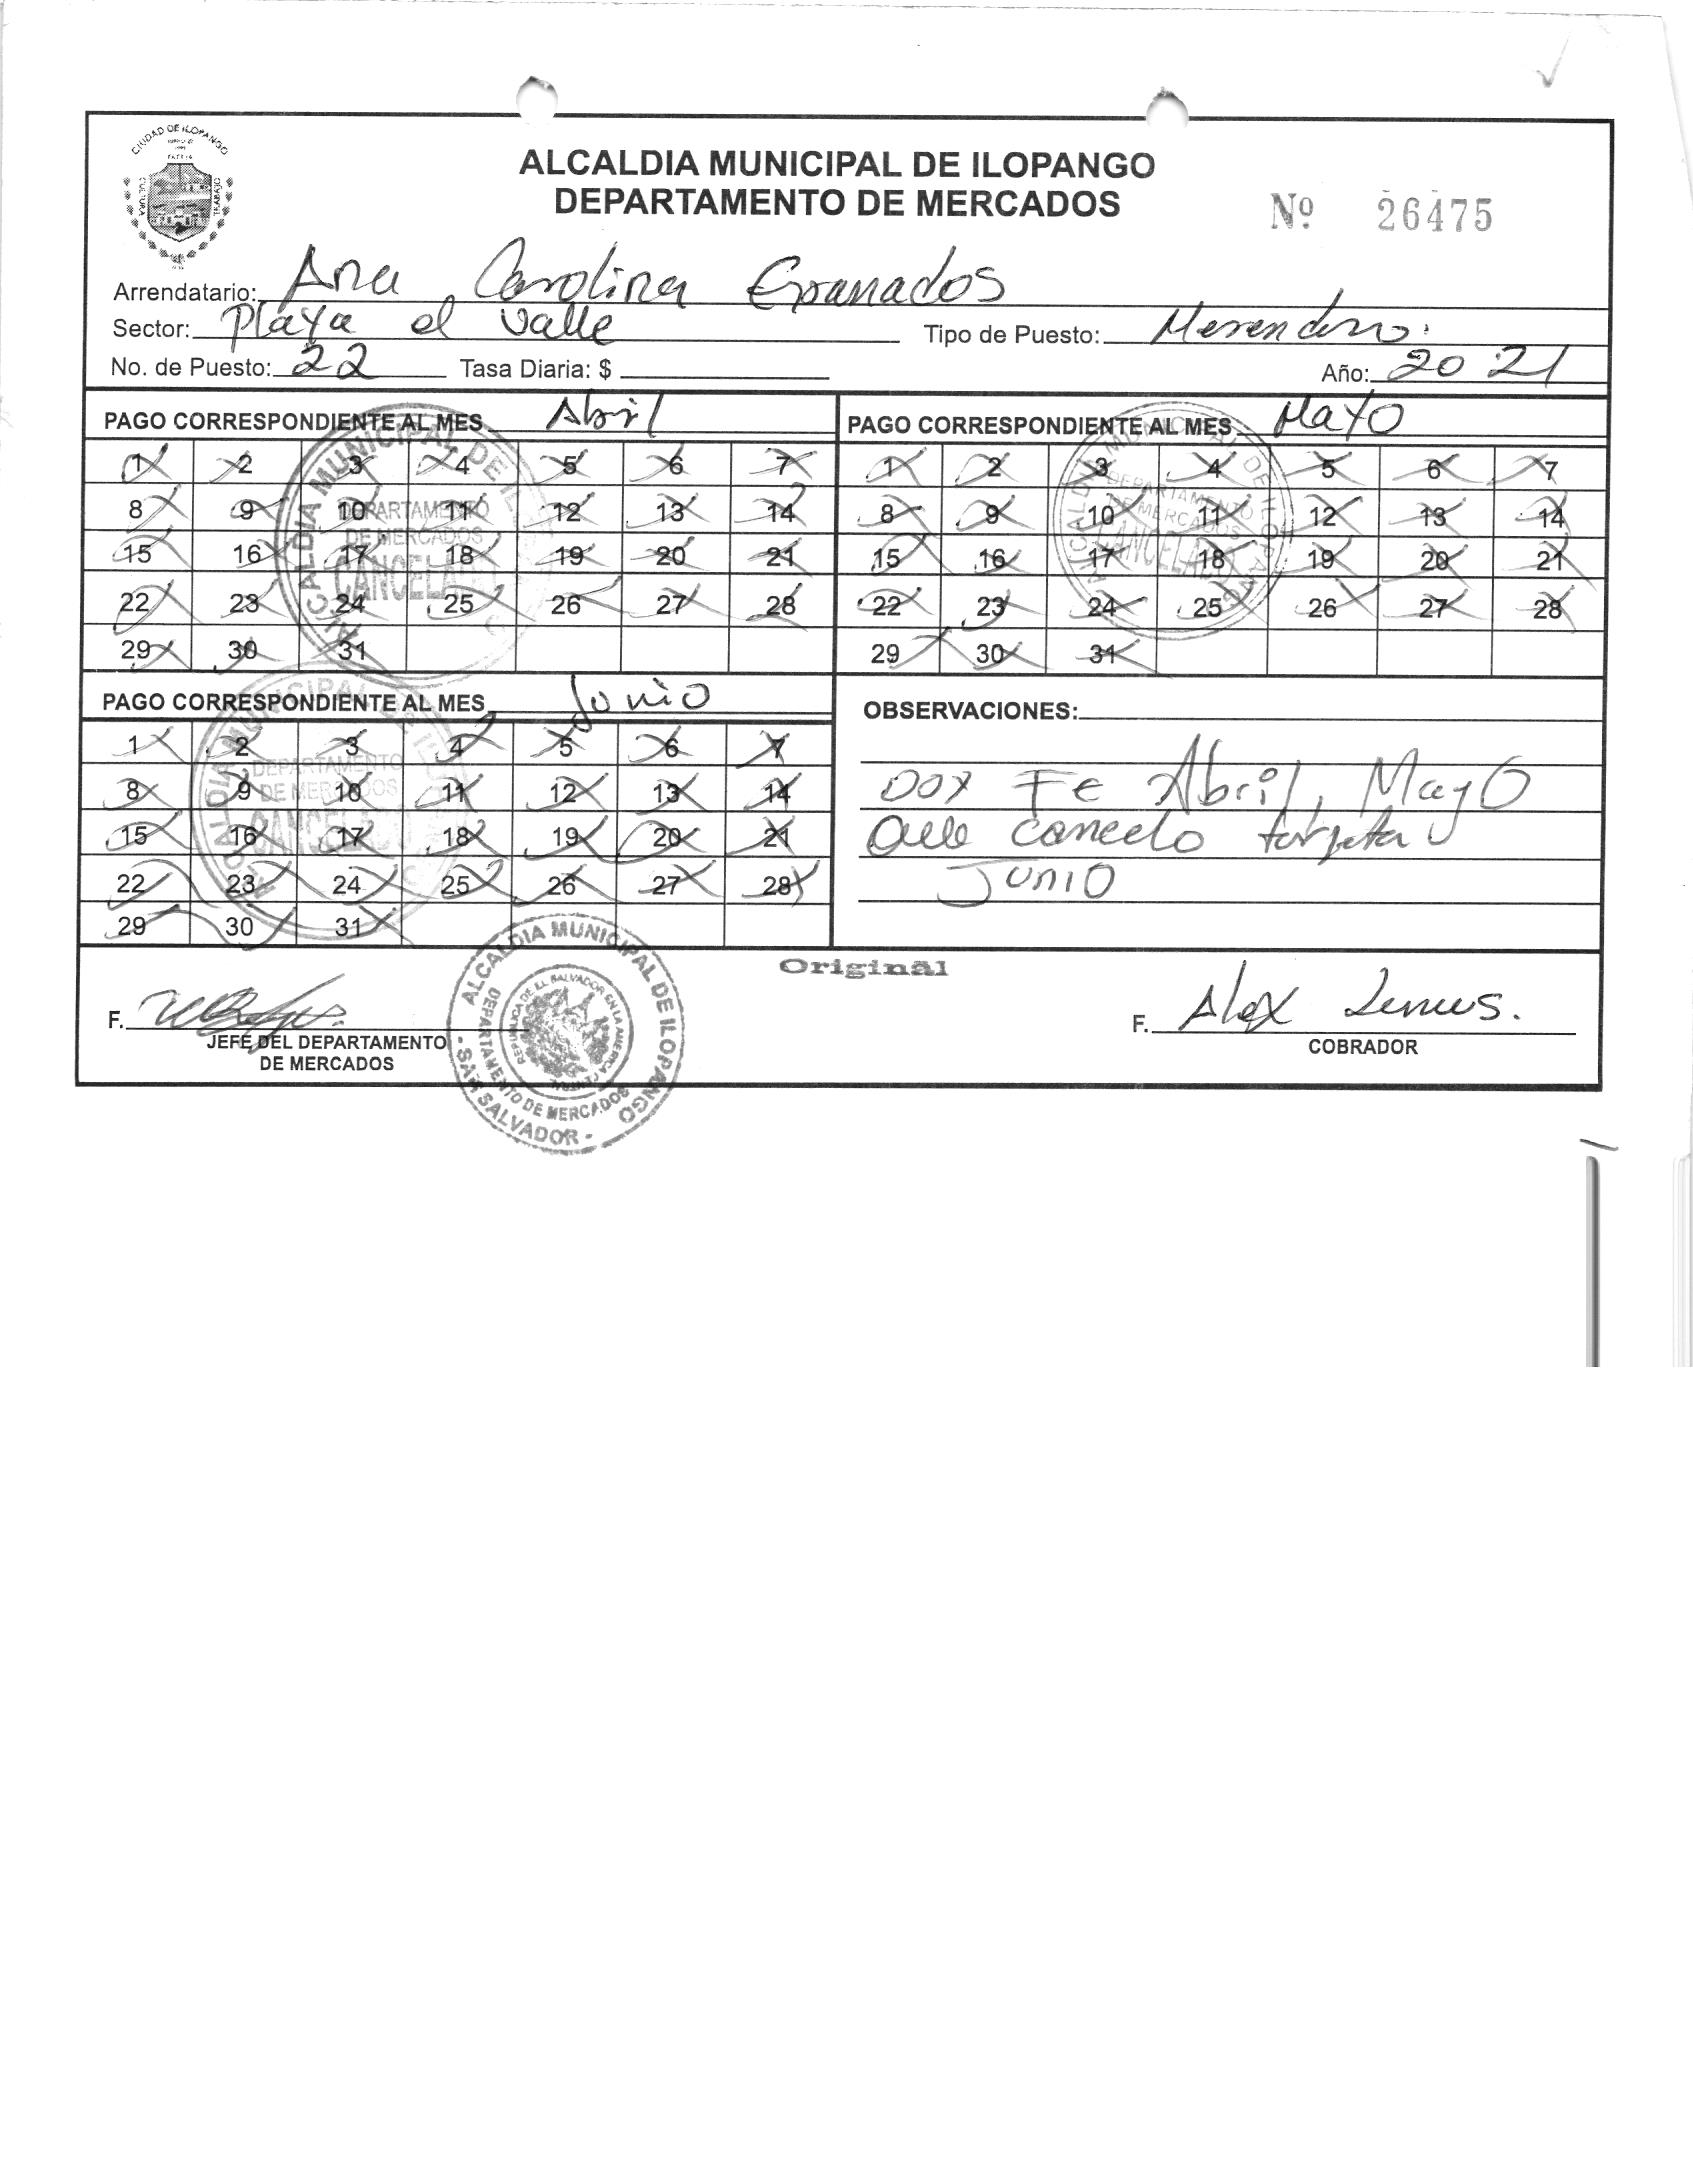 CIUDAD DE ILOPANGO
CULTURA
TRABAJO
ALCALDIA MUNICIPAL DE ILOPANGO
DEPARTAMENTO DE MERCADOS
Nº 26475
Arrendatario: Ana Carolina Granados
Sector: Playa el Valle Tipo de Puesto: Merendero
No. de Puesto: 22 Tasa Diaria: $ Año: 2021
PAGO CORRESPONDIENTE AL MES Abril
1 2 3 4 5 6 7
8 9 10 11 12 13 14
15 16 17 18 19 20 21
22 23 24 25 26 27 28
29 30 31
ALCALDIA MUNICIPAL DE
DEPARTAMENTO
DE MERCADOS
CANCELADO
PAGO CORRESPONDIENTE AL MES Mayo
1 2 3 4 5 6 7
8 9 10 11 12 13 14
15 16 17 18 19 20 21
22 23 24 25 26 27 28
29 30 31
ALCALDIA MUNICIPAL DE ILOPANGO
DEPARTAMENTO
DE MERCADOS
CANCELADO
PAGO CORRESPONDIENTE AL MES Junio
1 2 3 4 5 6 7
8 9 10 11 12 13 14
15 16 17 18 19 20 21
22 23 24 25 26 27 28
29 30 31
ALCALDIA MUNICIPAL DE
DEPARTAMENTO
DE MERCADOS
CANCELADO
OBSERVACIONES:
Doy Fe Abril, Mayo
que cancelo tarjeta
Junio
Original
F.
JEFE DEL DEPARTAMENTO
DE MERCADOS
ALCALDIA MUNICIPAL DE ILOPANGO
DEPARTAMENTO DE MERCADOS
REPUBLICA DE EL SALVADOR EN LA AMERICA CENTRAL
- SAN SALVADOR -
F. Alex Lemus.
COBRADOR